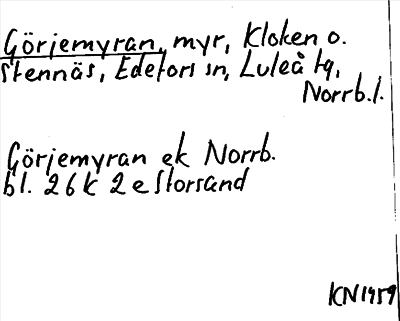 Görjemyran, myr, Kloken o.
Stennäs, Edefors sn, Luleå tg,
Norrb.l.
Görjemyran ek Norrb.
bl. 26 K 2 e Storsand
KN 1959